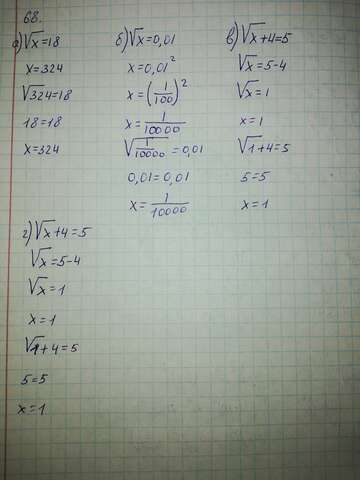 68.
а) √x=18
x=324
√324=18
18=18
x=324
б) √x=0,01
x=0,01²
x=(1/100)²
x=1/10000
√1/10000=0,01
0,01=0,01
x=1/10000
в) √x+4=5
√x=5-4
√x=1
x=1
√1+4=5
5=5
x=1
г) √x+4=5
√x=5-4
√x=1
x=1
√1+4=5
5=5
x=1